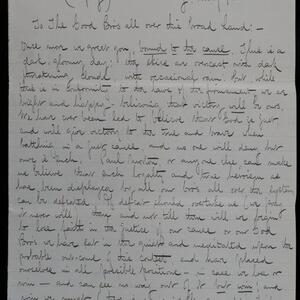 To The Good Bros all over this Broad Land:-
Once more we greet you, bound to the cause. This is a
dark, gloomy day: the skies are overcast with dark
threatening clouds, with occasional rain. But, while
this is in conformity to the laws of the government we are
brighter and happier - believing that victory will be ours.
We have ever been led to believe that God is just
and will give victory to the true and brave when
battling in a just cause, and no one will deny that
ours is such. or any one else can make
us believe that such loyalty and true heroism as
has been displayed by all our bros. all over the system
can be defeated. If defeat should overtake us (we pray
it never will) then and not till then will we begin
to lose faith in the justice of our cause or our God
Bros we have sat in the quiet and meditated upon the
probable outcome of this contest and have placed
ourselves in all possible positions - in case we lose or
win - and can see no way out of it but win; and